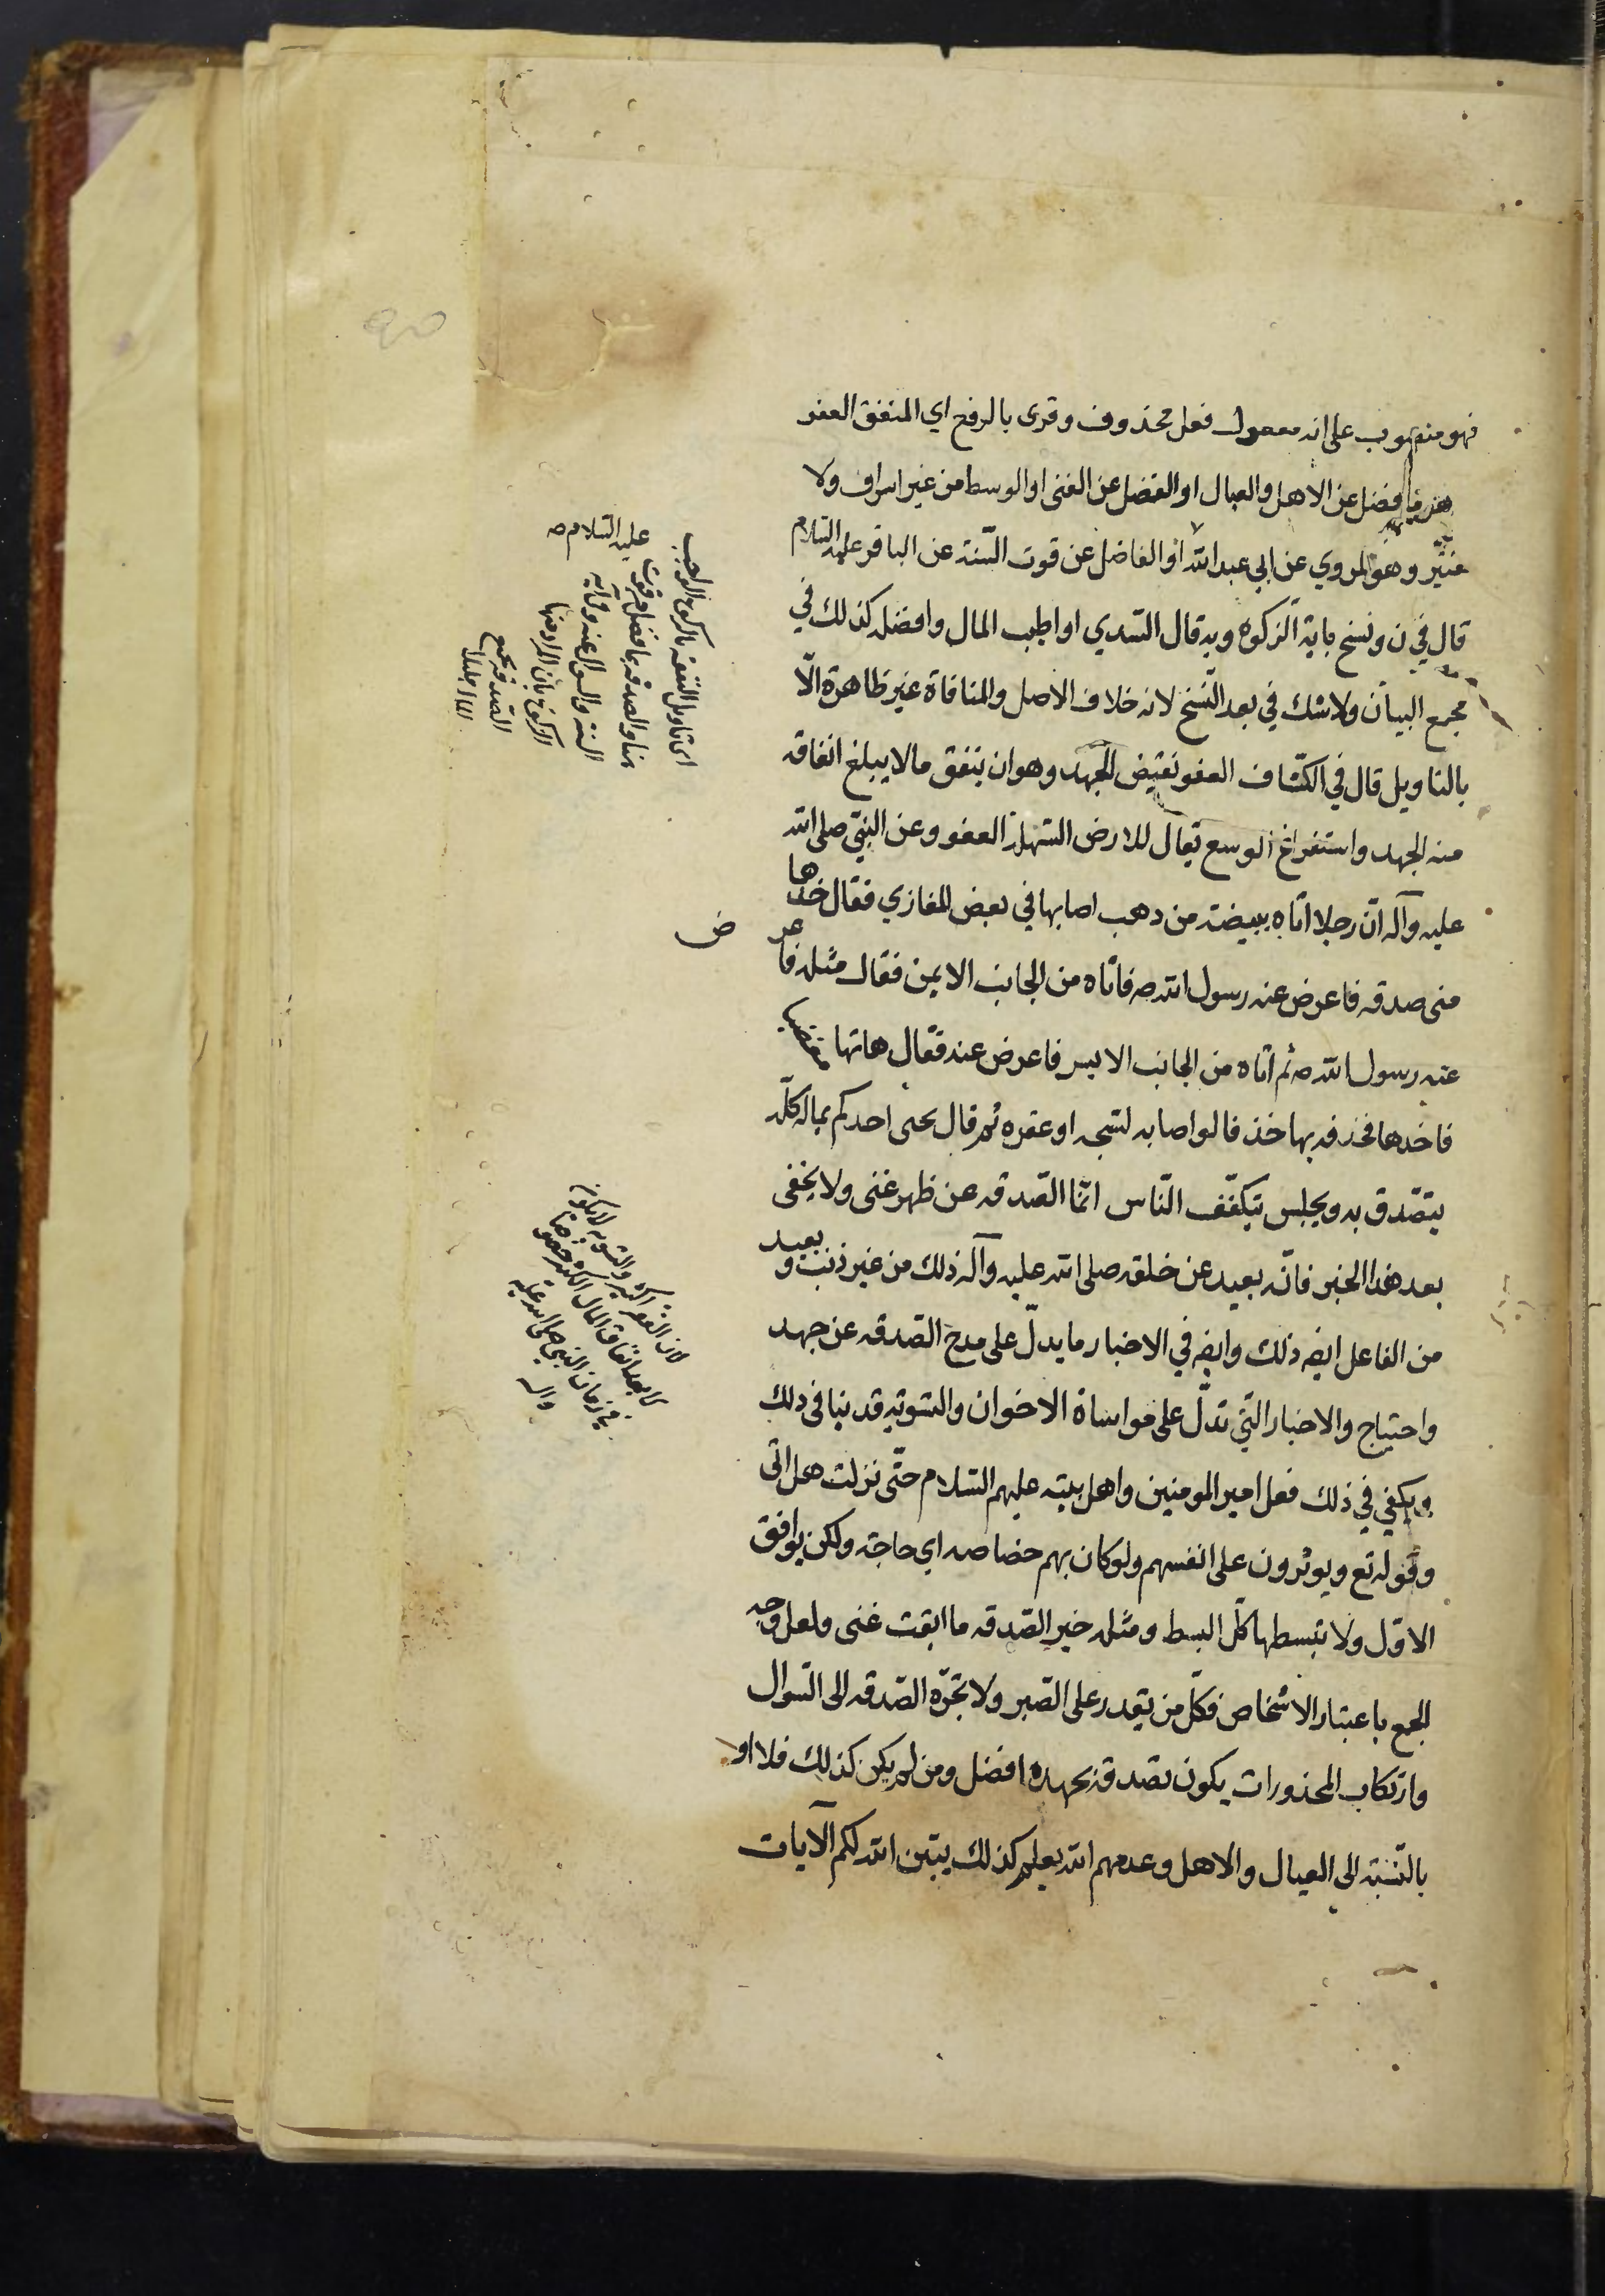 فهو منصوب على انه معمول فعل محذوف وقرى بالرفع اي المنفق العفو
هو ما فضل عن الاهل والعيال او الفضل عن الغنى او الوسط من غير اسراف ولا
وهو المروي عن ابي عبد الله او الفاضل عن قوت السّنة عن الباقر عليه السلام
قال في ن ونسخ باية الزكوة وبه قال السّدي او اطيب المال وافضله كذلك في
مجمع البيان ولا شك في بعد النّسخ لانه خلاف الاصل والمنافاة غير ظاهرة الّا
بالتاويل قال في الكشّاف العفو نقيض الجهد وهو ان ينفق ما لا يبلغ انفاقه
منه الجهد واستفراغ الوسع يقال للارض السّهلة العفو وعن النبيّ صلى الله
عليه وآله انّ رجلا اتاه ببيضة من دهب اصابها في بعض المغازي فقال خدها
منى صدقه فاعرض عنه رسول الله ص فاتاه من الجانب الايمن فقال مثله فاعرض
عنه رسول الله ص ثم اتاه من الجانب الايسر فاعرض عنه فقال هاتها مغضبا
فاخدها فخذفه بها خذفا لو اصابه لشجه او عقره ثم قال يحى احدكم بماله كلّه
يتصّدق به ويجلس يتكفّف النّاس انّما الصّدقه عن ظهر غنى ولا يخفى
بعد هذا الخبر فانّه بعيد عن خلقه صلى الله عليه وآله ذلك من غير ذنب وبعيد
من الفاعل ايضه ذلك وايضه في الاخبار ما يدلّ على مدح الصّدقه عن جهد
واحتياج والاخبار الّتي تدلّ على مواساة الاخوان والتّسوية قد ينافى دلك
ويكفي في ذلك فعل امير المومنين واهل بيته عليهم السّلام حتّى نزلت هل اتى
وقوله تع ويوثرون على انفسهم ولو كان بهم خصاصه اي حاجة ولكن يوافق
الاوّل ولا تبسطها كلّ البسط ومثله خير الصّدقه ما ابقت غنى ولعل وجه
الجمع باعتبار الاشخاص فكلّ من يقدر على الصّبر ولا تجرّه الصّدقه الى السّوال
وارتكاب المحذورات يكون تصدقه بجهده افضل ومن لم يكن كذلك فلا او
بالنّسبة الى العيال والاهل وعدمهم الله يعلم كذلك يبيّن الله لكم الآيات
عليه السّلام ص
اى تاويل النفقه بالزكوة الواجب
والسوال عنه
الزكوة بان المراد منها
الصّدقه
لان الفقر اكثر والتسويه لا يكون
الا بعد انفاق المال الكثير خصوصا
في زمان النبي صلى الله عليه
واله